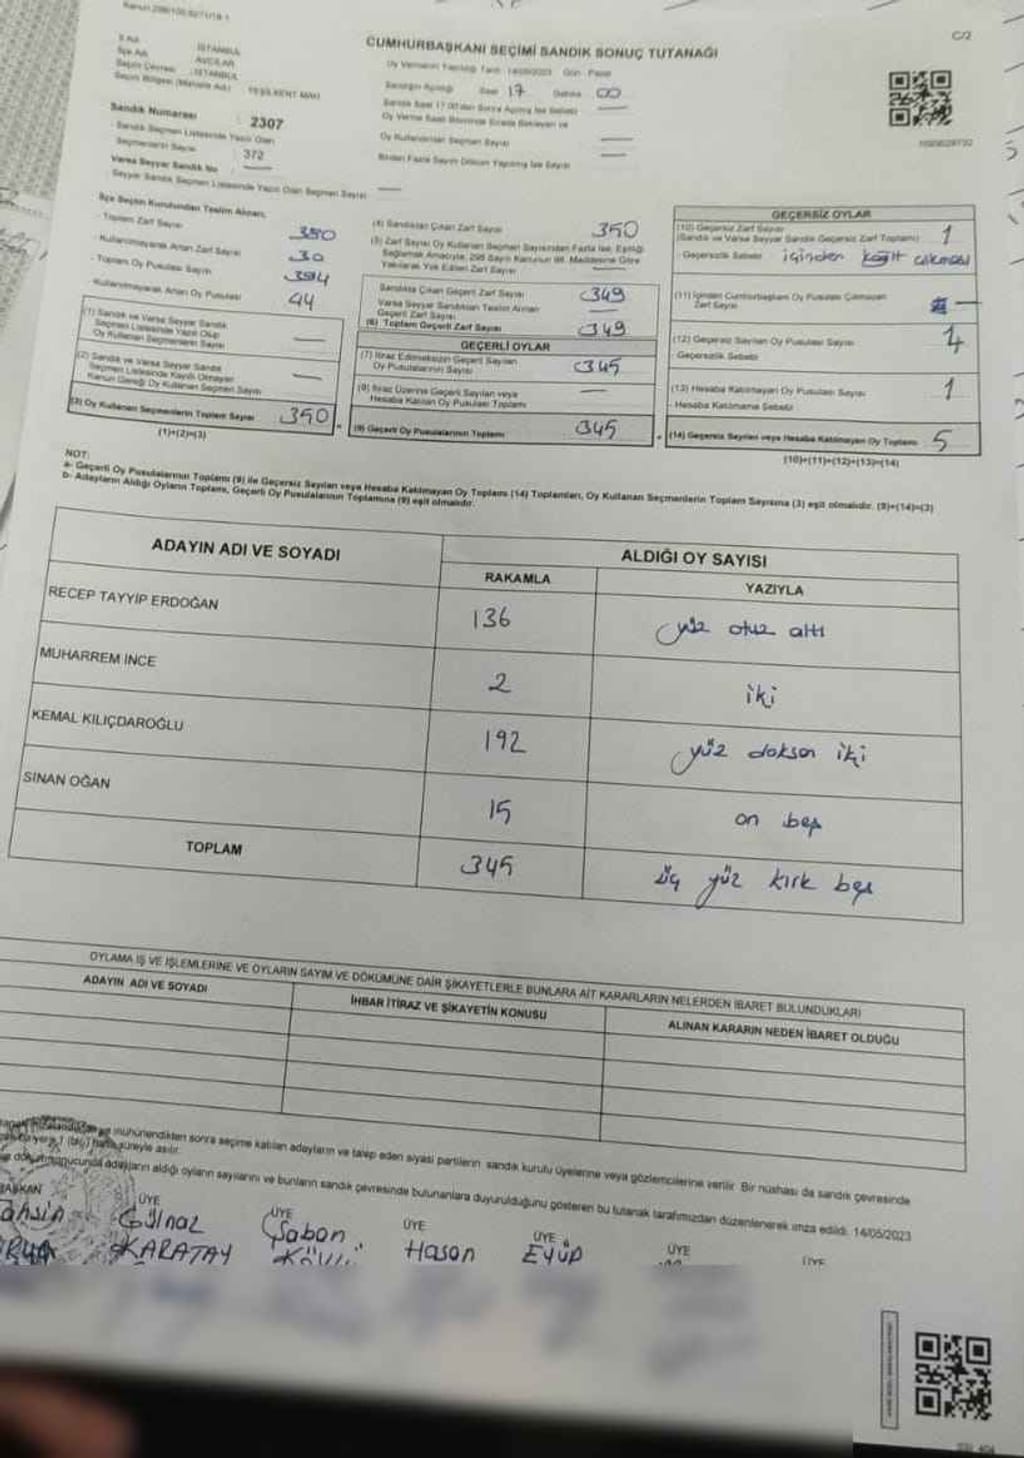 C/2
CUMHURBAŞKANI SEÇİMİ SANDIK SONUÇ TUTANAĞI
İli Adı İSTANBUL
İlçe Adı AVCILAR
Seçim Çevresi : İSTANBUL
Seçim Bölgesi (Mahalle Adı) YEŞİLKENT MAH
Oy Vermenin Yapıldığı Tarih 14/05/2023 Gün Pazar
Sandığın Açıldığı Saat 17 Dakika 00
Oy Kullandırılan Seçmen Sayısı
Sandık Numarası : 2307
Sandık Seçmen Listesinde Yazılı Olan
Seçmenlerin Sayısı 372
Varsa Seyyar Sandık No
Seyyar Sandık Seçmen Listesinde Yazılı Olan Seçmen Sayısı
İlçe Seçim Kurulundan Teslim Alınan;
Toplam Zarf Sayısı 380
Kullanılmayarak Artan Zarf Sayısı 30
Toplam Oy Pusulası Sayısı 394
Kullanılmayarak Artan Oy Pusulası 44
(1) Sandık ve Varsa Seyyar Sandık
Seçmen Listesinde Yazılı Olup
Oy Kullanan Seçmenlerin Sayısı
(2) Sandık ve Varsa Seyyar Sandık
Seçmen Listesinde Kaydı Olmayan
Kanun Gereği Oy Kullanan Seçmen Sayısı
(3) Oy Kullanan Seçmenlerin Toplam Sayısı 350
(1)+(2)=(3)
(4) Sandıktan Çıkan Zarf Sayısı 350
(5) Zarf Sayısı Oy Kullanan Seçmen Sayısından Fazla İse, Eşitliği
Sağlamak Amacıyla, 298 Sayılı Kanunun 98. Maddesine Göre
Yakılarak Yok Edilen Zarf Sayısı
Sandıkta Çıkan Geçerli Zarf Sayısı 349
Varsa Seyyar Sandıktan Teslim Alınan
Geçerli Zarf Sayısı
(6) Toplam Geçerli Zarf Sayısı 349
GEÇERLİ OYLAR
(7) İtiraz Edilmeksizin Geçerli Sayılan
Oy Pusulalarının Sayısı 345
(8) İtiraz Üzerine Geçerli Sayılan veya
Hesaba Katılan Oy Pusulaları Toplamı
(9) Geçerli Oy Pusulalarının Toplamı 345
GEÇERSİZ OYLAR
(10) Geçersiz Zarf Sayısı 1
(Sandık ve Varsa Seyyar Sandık Geçersiz Zarf Toplamı)
Geçersizlik Sebebi içinden kağıt çıkması
(11) İçinden Cumhurbaşkanı Oy Pusulası Çıkmayan
Zarf Sayısı
(12) Geçersiz Sayılan Oy Pusulası Sayısı 4
Geçersizlik Sebebi
(13) Hesaba Katılmayan Oy Pusulası Sayısı 1
- Hesaba Katılmama Sebebi
(14) Geçersiz Sayılan veya Hesaba Katılmayan Oy Toplamı 5
(10)+(11)+(12)+(13)=(14)
NOT:
a- Geçerli Oy Pusulalarının Toplamı (9) ile Geçersiz Sayılan veya Hesaba Katılmayan Oy Toplamı (14) Toplamları, Oy Kullanan Seçmenlerin Toplam Sayısına (3) eşit olmalıdır. (9)+(14)=(3)
b- Adayların Aldığı Oyların Toplamı, Geçerli Oy Pusulalarının Toplamına (9) eşit olmalıdır.
ADAYIN ADI VE SOYADI
ALDIĞI OY SAYISI
RAKAMLA YAZIYLA
RECEP TAYYİP ERDOĞAN 136 yüz otuz altı
MUHARREM İNCE 2 iki
KEMAL KILIÇDAROĞLU 192 yüz doksan iki
SİNAN OĞAN 15 on beş
TOPLAM 345 üç yüz kırk beş
OYLAMA İŞ VE İŞLEMLERİNE VE OYLARIN SAYIM VE DÖKÜMÜNE DAİR ŞİKAYETLERLE BUNLARA AİT KARARLARIN NELERDEN İBARET BULUNDUKLARI
ADAYIN ADI VE SOYADI
İHBAR İTİRAZ VE ŞİKAYETİN KONUSU
ALINAN KARARIN NEDEN İBARET OLDUĞU
mühürlendikten sonra seçime katılan adayların ve talep eden siyasi partilerin sandık kurulu üyelerine veya gözlemcilerine verilir. Bir nüshası da sandık çevresinde
süreyle asılır.
adayların aldığı oyların sayılarını ve bunların sandık çevresinde bulunanlara duyurulduğunu gösteren bu tutanak tarafımızdan düzenlenerek imza edildi. 14/05/2023
BAŞKAN ÜYE ÜYE ÜYE ÜYE ÜYE ÜYE
Gülnaz Şaban Hasan Eyüp
KARATAY